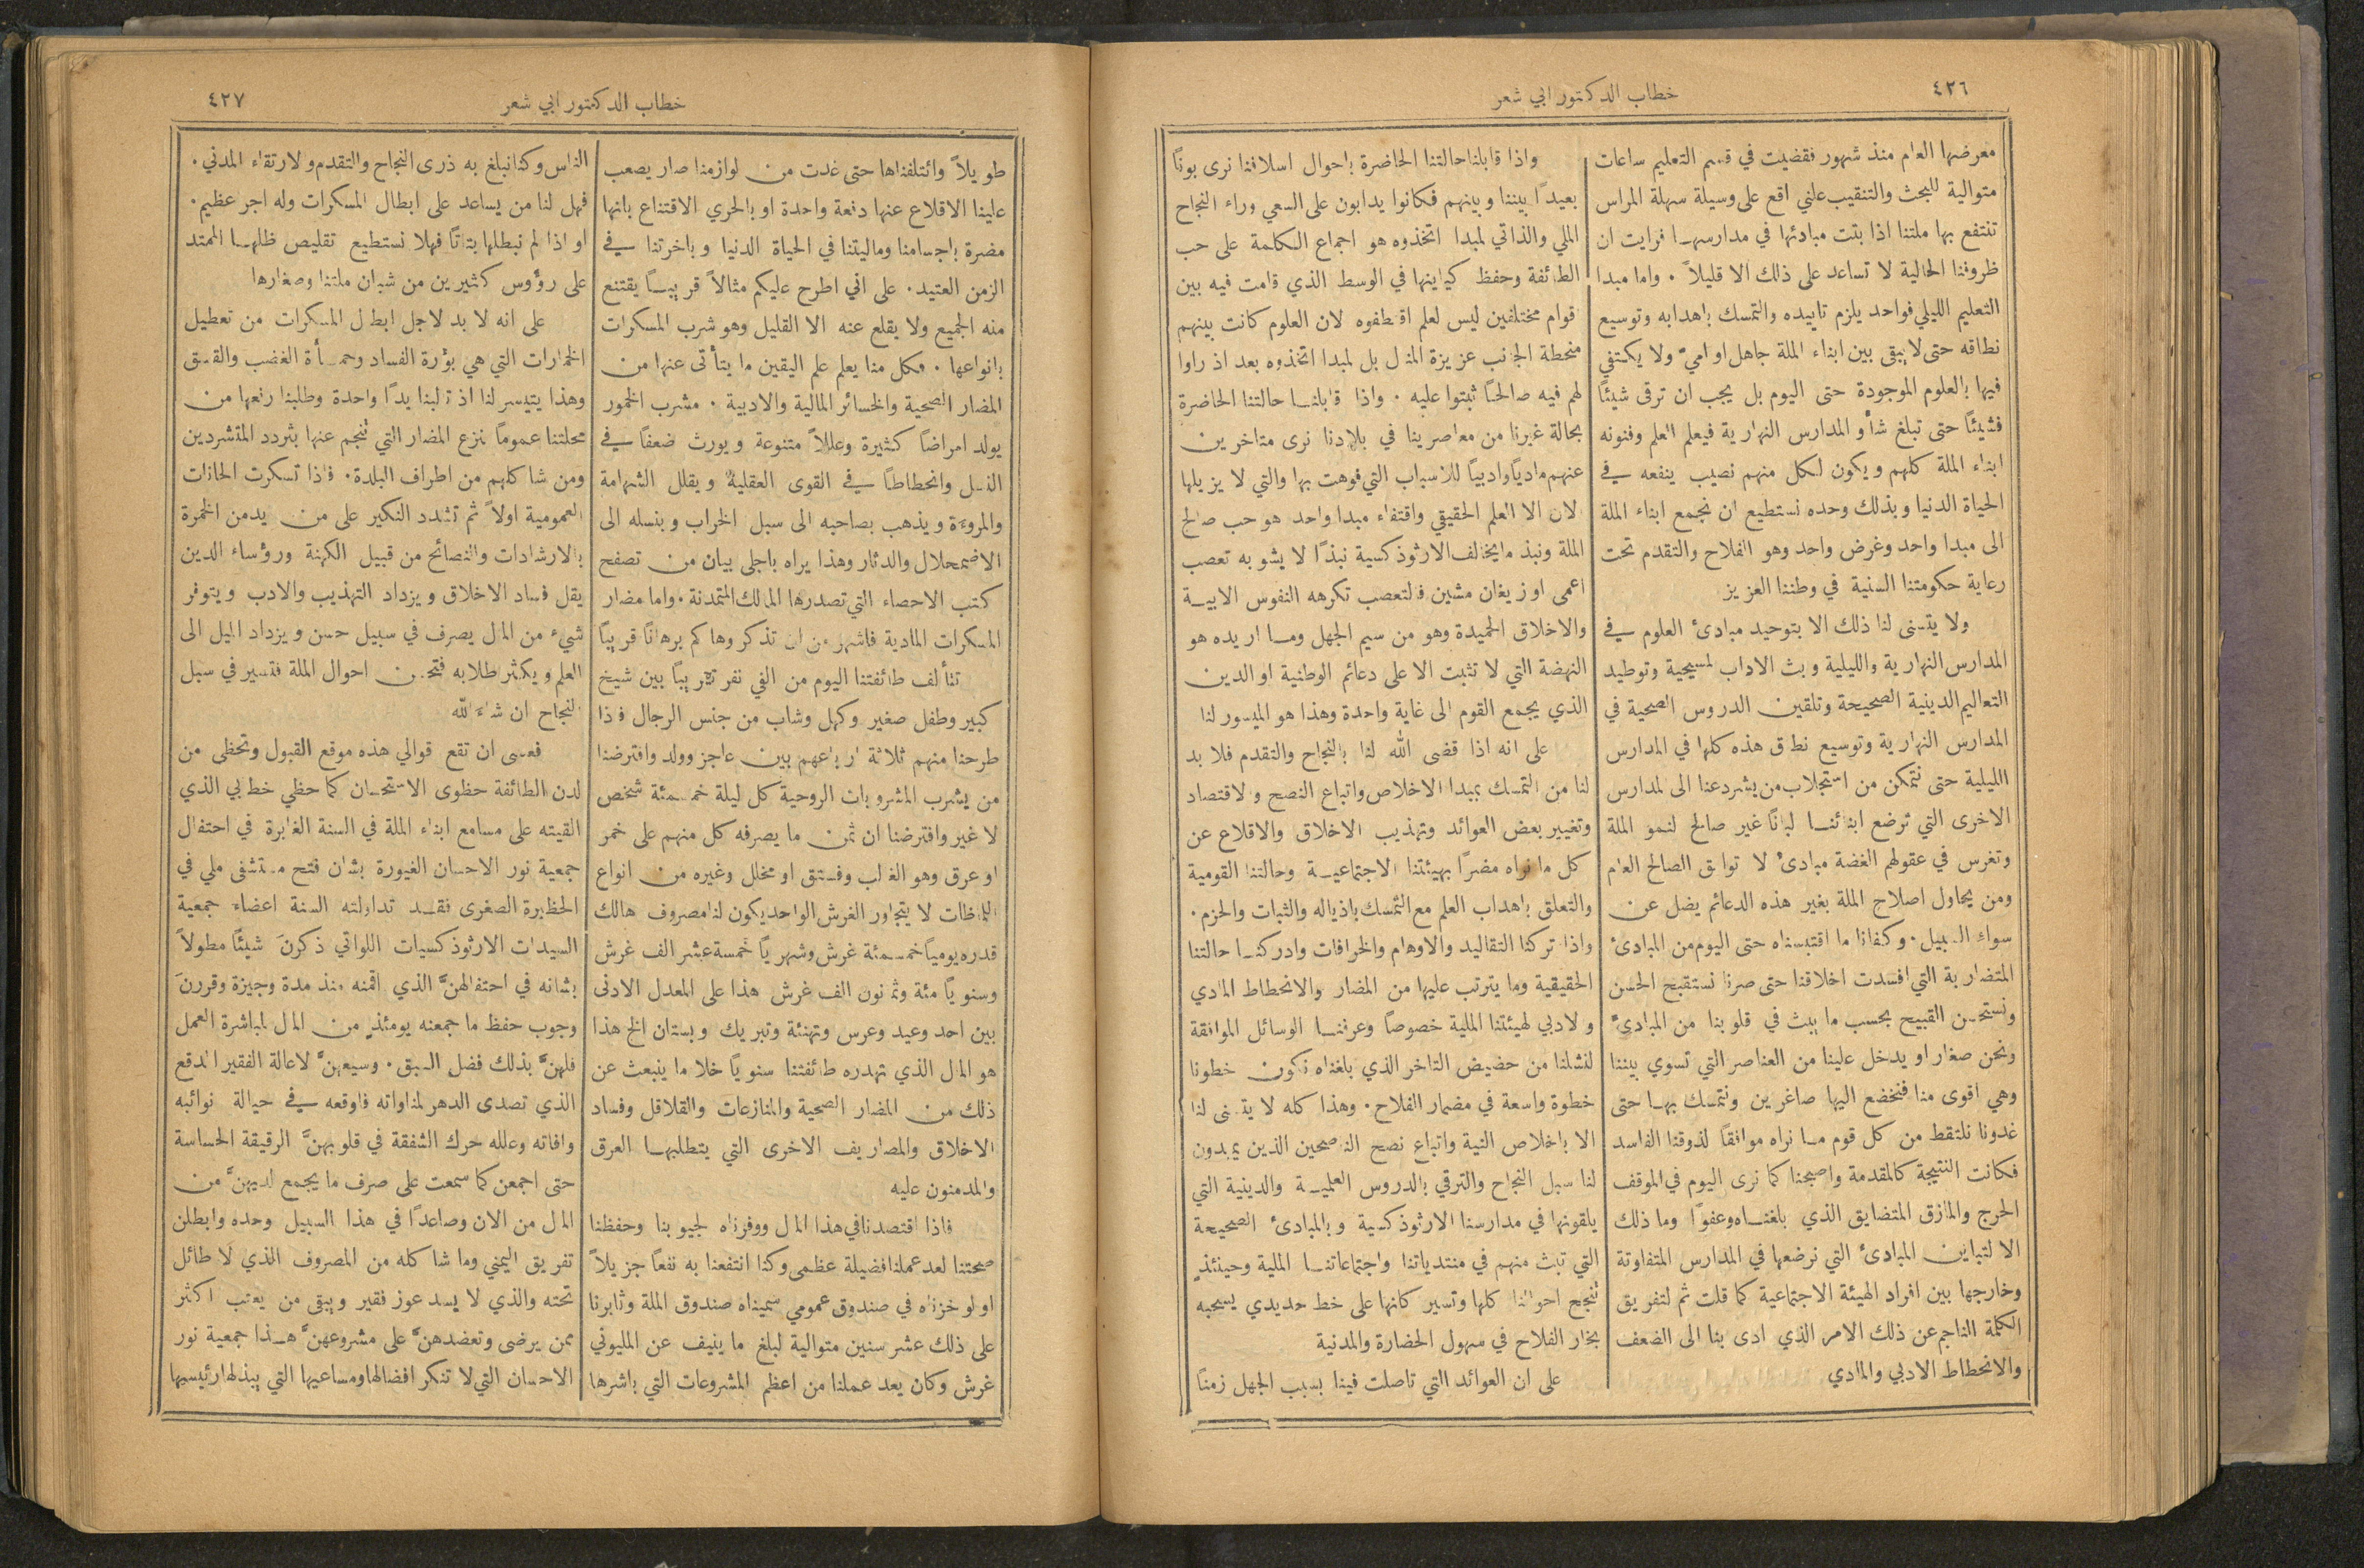 ٤٢٦
خطاب الدكتور ابي شعر
معرضها العام منذ شهور فقضيت في قسم التعليم ساعات
متوالية للبحث والتنقيب علني اقع على وسيلة سهلة المراس
تنتفع بها ملتنا اذا بثت مبادئها في مدارسهـا فرايت ان
ظروفنا الحالية لا تساعد على ذلك الا قليلاً . واما مبدا
التعليم الليلي فواحد يلزم تاييده والتمسك باهدابه وتوسيع
نطاقه حتى لا يبقى بين ابناء الملة جاهل او اميّ ولا يكتفي
فيها بالعلوم الموجودة حتى اليوم بل يجب ان ترقى شيئًا
فشيئًا حتى تبلغ شأو المدارس النهارية فيعلم العلم وفنونه
ابناء الملة كلهم ويكون لكل منهم نصيب ينفعه في
الحياة الدنيا وبذلك وحده نستطيع ان نجمع ابناء الملة
الى مبدا واحد وغرض واحد وهو الفلاح والتقدم تحت
رعاية حكومتنا السنية في وطننا العزيز
ولا يتسنى لنا ذلك الا بتوحيد مبادئ العلوم في
المدارس النهارية والليلية وبث الاداب المسيحية وتوطيد
التعاليم الدينية الصحيحة وتلقين الدروس الصحية في
المدارس النهارية وتوسيع نطاق هذه كلها في المدارس
الليلية حتى نتمكن من استجلاب من يشرد عنا الى المدارس
الاخرى التي ترضع ابنائنـا لبانًا غير صالح لنمو الملة
وتغرس في عقولهم الغضة مبادئ لا توافق الصالح العام
ومن يحاول اصلاح الملة بغير هذه الدعائم يضل عن
سواء السبيل . وكفانا ما اقتبسناه حتى اليوم من المبادئ
المتضاربة التي افسدت اخلاقنا حتى صرنا نستقبح الحسن
ونستحسن القبيح بحسب ما يبث في قلوبنا من المبادئ
ونحن صغار او يدخل علينا من العناصر التي تسوي بيننا
وهي اقوى منا فنخضع اليها صاغرين ونتمسك بهـا حتى
غدونا نلتقط من كل قوم مـا نراه موافقًا لذوقنا الفاسد
فكانت النتيجة كالمقدمة واصبحنا كما نرى اليوم في الموقف
الحرج والمازق المتضايق الذي بلغنـاه وعفوًا وما ذلك
الا لتباين المبادئ التي نرضعها في المدارس المتفاوتة
وخارجها بين افراد الهيئة الاجتماعية كما قلت ثم لتفريق
الكلمة الناجم عن ذلك الامر الذي ادى بنا الى الضعف
والانحطاط الادبي والمادي
واذا قابلنا حالتنا الحاضرة باحوال اسلافنا نرى بونًا
بعيدًا بيننا وبينهم فكانوا يدابون على السعي وراء النجاح
الملي والذاتي لمبدا اتخذوه هو اجماع الكلمة على حب
الطائفة وحفظ كيانها في الوسط الذي قامت فيه بين
قوام مختلفين ليس لعلم اقتطفوه لان العلوم كانت بينهم
منحطة الجانب عزيزة المنال بل لمبدا اتخذوه بعد اذ راوا
لهم فيه صالحًا ثبتوا عليه . واذا قابلنـا حالتنا الحاضرة
بحالة غيرنا من معاصرينا في بلادنا نرى متاخرين
عنهم ماديًا وادبيًا للاسباب التي فوهت بها والتي لا يزيلها
لان الا العلم الحقيقي واقتفاء مبدا واحد هو حب صالح
الملة ونبذ ما يخالف الارثوذكسية نبذًا لا يشوبه تعصب
اعمى او زيغان مشين فالتعصب تكرهه النفوس الابيـة
والاخلاق الحميدة وهو من سيم الجهل ومـا اريده هو
النهضة التي لا تثبت الا على دعائم الوطنية او الدين
الذي يجمع القوم الى غاية واحدة وهذا هو الميسور لنا
على انه اذا قضى الله لنا بالنجاح والتقدم فلا بد
لنا من التمسك بمبدا الاخلاص واتباع النصح والاقتصاد
وتغيير بعض العوائد وتهذيب الاخلاق والاقلاع عن
كل ما نراه مضرًا بهيئتنا الاجتماعيـة وحالتنا القومية
والتعلق باهداب العلم مع التمسك باذياله والثبات والحزم .
واذا تركنا التقاليد والاوهام والخرافات وادركنـا حالتنا
الحقيقية وما يترتب عليها من المضار والانحطاط المادي
والادبي لهيئتنا الملية خصوصًا وعرفنـا الوسائل الموافقة
لنشلنا من حضيض التاخر الذي بلغناه نكون خطونا
خطوة واسعة في مضمار الفلاح . وهذا كله لا يتسنى لنا
الا باخلاص النية واتباع نصح الناصحين الذين يمهدون
لنا سبل النجاح والترقي بالدروس العلميـة والدينية التي
يلقونها في مدارسنا الارثوذكسية وبالمبادئ الصحيحة
التي تبث منهم في منتدياتنا واجتماعاتنـا الملية وحينئذٍ
تنجح احوالنا كلها وتسير كانها على خط حديدي يسحبه
بخار الفلاح في سهول الحضارة والمدنية
على ان العوائد التي تاصلت فينا بسبب الجهل زمنًا
خطاب الدكتور ابي شعر
٤٢٧
طويلاً وائتلفناها حتى غدت من لوازمنا صار يصعب
علينا الاقلاع عنها دفعة واحدة او بالحري الاقتناع بانها
مضرة باجسامنا وماليتنا في الحياة الدنيا وباخرتنا في
الزمن العتيد . على اني اطرح عليكم مثالاً قريبـًا يقتنع
منه الجميع ولا يقلع عنه الا القليل وهو شرب المسكرات
بانواعها . فكل منا يعلم علم اليقين ما يتأتى عنها من
المضار الصحية والخسائر المالية والادبية . فشرب الخمور
يولد امراضًا كثيرة وعللاً متنوعة ويورث ضعفًا في
النسل وانحطاطًا في القوى العقلية ويقلل الشهامة
والمروءة ويذهب بصاحبه الى سبل الخراب وبنسله الى
الاضمحلال والدثار وهذا يراه باجلى بيان من تصفح
كتب الاحصاء التي تصدرها الممالك المتمدنة . واما مضار
المسكرات المادية فاشهر من ان تذكر وهاكم برهانًا قريبًا
تتألف طائفتنا اليوم من الفي نفر تقريبًا بين شيخ
كبير وطفل صغير وكهل وشاب من جنس الرجال فاذا
طرحنا منهم ثلاثة ارباعهم بين عاجز وولد وافترضنا
من يشرب المشروبات الروحية كل ليلة خمسمئة شخص
لا غير وافترضنا ان ثمن ما يصرفه كل منهم على خمر
او عرق وهو الغالب وفستق او مخلل وغيره من انواع
اللماظات لا يتجاوز الغرش الواحد يكون لنا مصروف هالك
قدره يوميًا خمسمئة غرش وشهريًا خمسة عشر الف غرش
وسنويًا مئة وثمانون الف غرش هذا على المعدل الادنى
بين احد وعيد وعرس وتهنئة وتبريك وبستان الخ هذا
هو المال الذي تهدره طائفتنا سنويًا خلا ما ينبعث عن
ذلك من المضار الصحية والمنازعات والقلاقل وفساد
الاخلاق والمصاريف الاخرى التي يتطلبهـا العرق
والمدمنون عليه
فاذا اقتصدنا في هذا المال ووفرناه لجيوبنا وحفظنا
صحتنا لعد عملنا فضيلة عظمى وكنا انتفعنا به نفعًا جزيلاً
او لو خزناه في صندوق عمومي سميناه صندوق الملة وثابرنا
على ذلك عشر سنين متوالية لبلغ ما ينيف عن المليوني
غرش وكان يعد عملنا من اعظم المشروعات التي باشرها
الناس وكنا نبلغ به ذرى النجاح والتقدم والارتقاء المدني .
فهل لنا من يساعد على ابطال المسكرات وله اجر عظيم .
او اذا لم نبطلها بتاتًا فهلا نستطيع تقليص ظلهـا الممتد
على رؤوس كثيرين من شبان ملتنا وصغارها
على انه لا بد لاجل ابطال المسكرات من تعطيل
الخمارات التي هي بؤرة الفساد وحمـأة الغضب والفسق
وهذا يتيسر لنا اذ تالبنا يدًا واحدة وطلبنا رفعها من
محلتنا عمومًا نزع المضار التي تنجم عنها بتردد المتشردين
ومن شاكلهم من اطراف البلدة . فاذا تسكرت الحانات
العمومية اولاً ثم تشدد النكير على من يدمن الخمرة
بالارشادات والنصائح من قبيل الكهنة ورؤساء الدين
يقل فساد الاخلاق ويزداد التهذيب والادب ويتوفر
شيء من المال يصرف في سبيل حسن ويزداد الميل الى
العلم ويكثر طلابه فتحسن احوال الملة فتسير في سبل
النجاح ان شاء الله
فعسى ان تقع اقوالي هذه موقع القبول وتحظى من
لدن الطائفة حظوى الاستحسان كما حظي خطابي الذي
القيته على مسامع ابناء الملة في السنة الغابرة في احتفال
جمعية نور الاحسان الغيورة بشان فتح مستشفى ملي في
الحظيرة الصغرى فقـد تداولته السنة اعضاء جمعية
السيدات الارثوذكسيات اللواتي ذكرنَ شيئًا مطولاً
بشانه في احتفالهنَّ الذي اقمنه منذ مدة وجيزة وقررنَ
وجوب حفظ ما جمعنه يومئذٍ من المال لمباشرة العمل
فلهنَّ بذلك فضل السبق . وسعيهنَّ لاعالة الفقير المدقع
الذي تصدى الدهر لمناواته فاوقعه في حبالة نوائبه
وافاته وعلله حرك الشفقة في قلوبهنَّ الرقيقة الحساسة
حتى اجمعن كما سمعت على صرف ما يجمع لديهنَّ من
المال من الان وصاعدًا في هذا السبيل وحده وابطلن
تفريق اليمني وما شاكله من المصروف الذي لا طائل
تحته والذي لا يسد عوز فقير ويبقى من يعتب اكثر
ممن يرضى وتعضدهنَّ على مشروعهنَّ هـذا جمعية نور
الاحسان التي لا تنكر افضالها ومساعيها التي يبذلها رئيسها